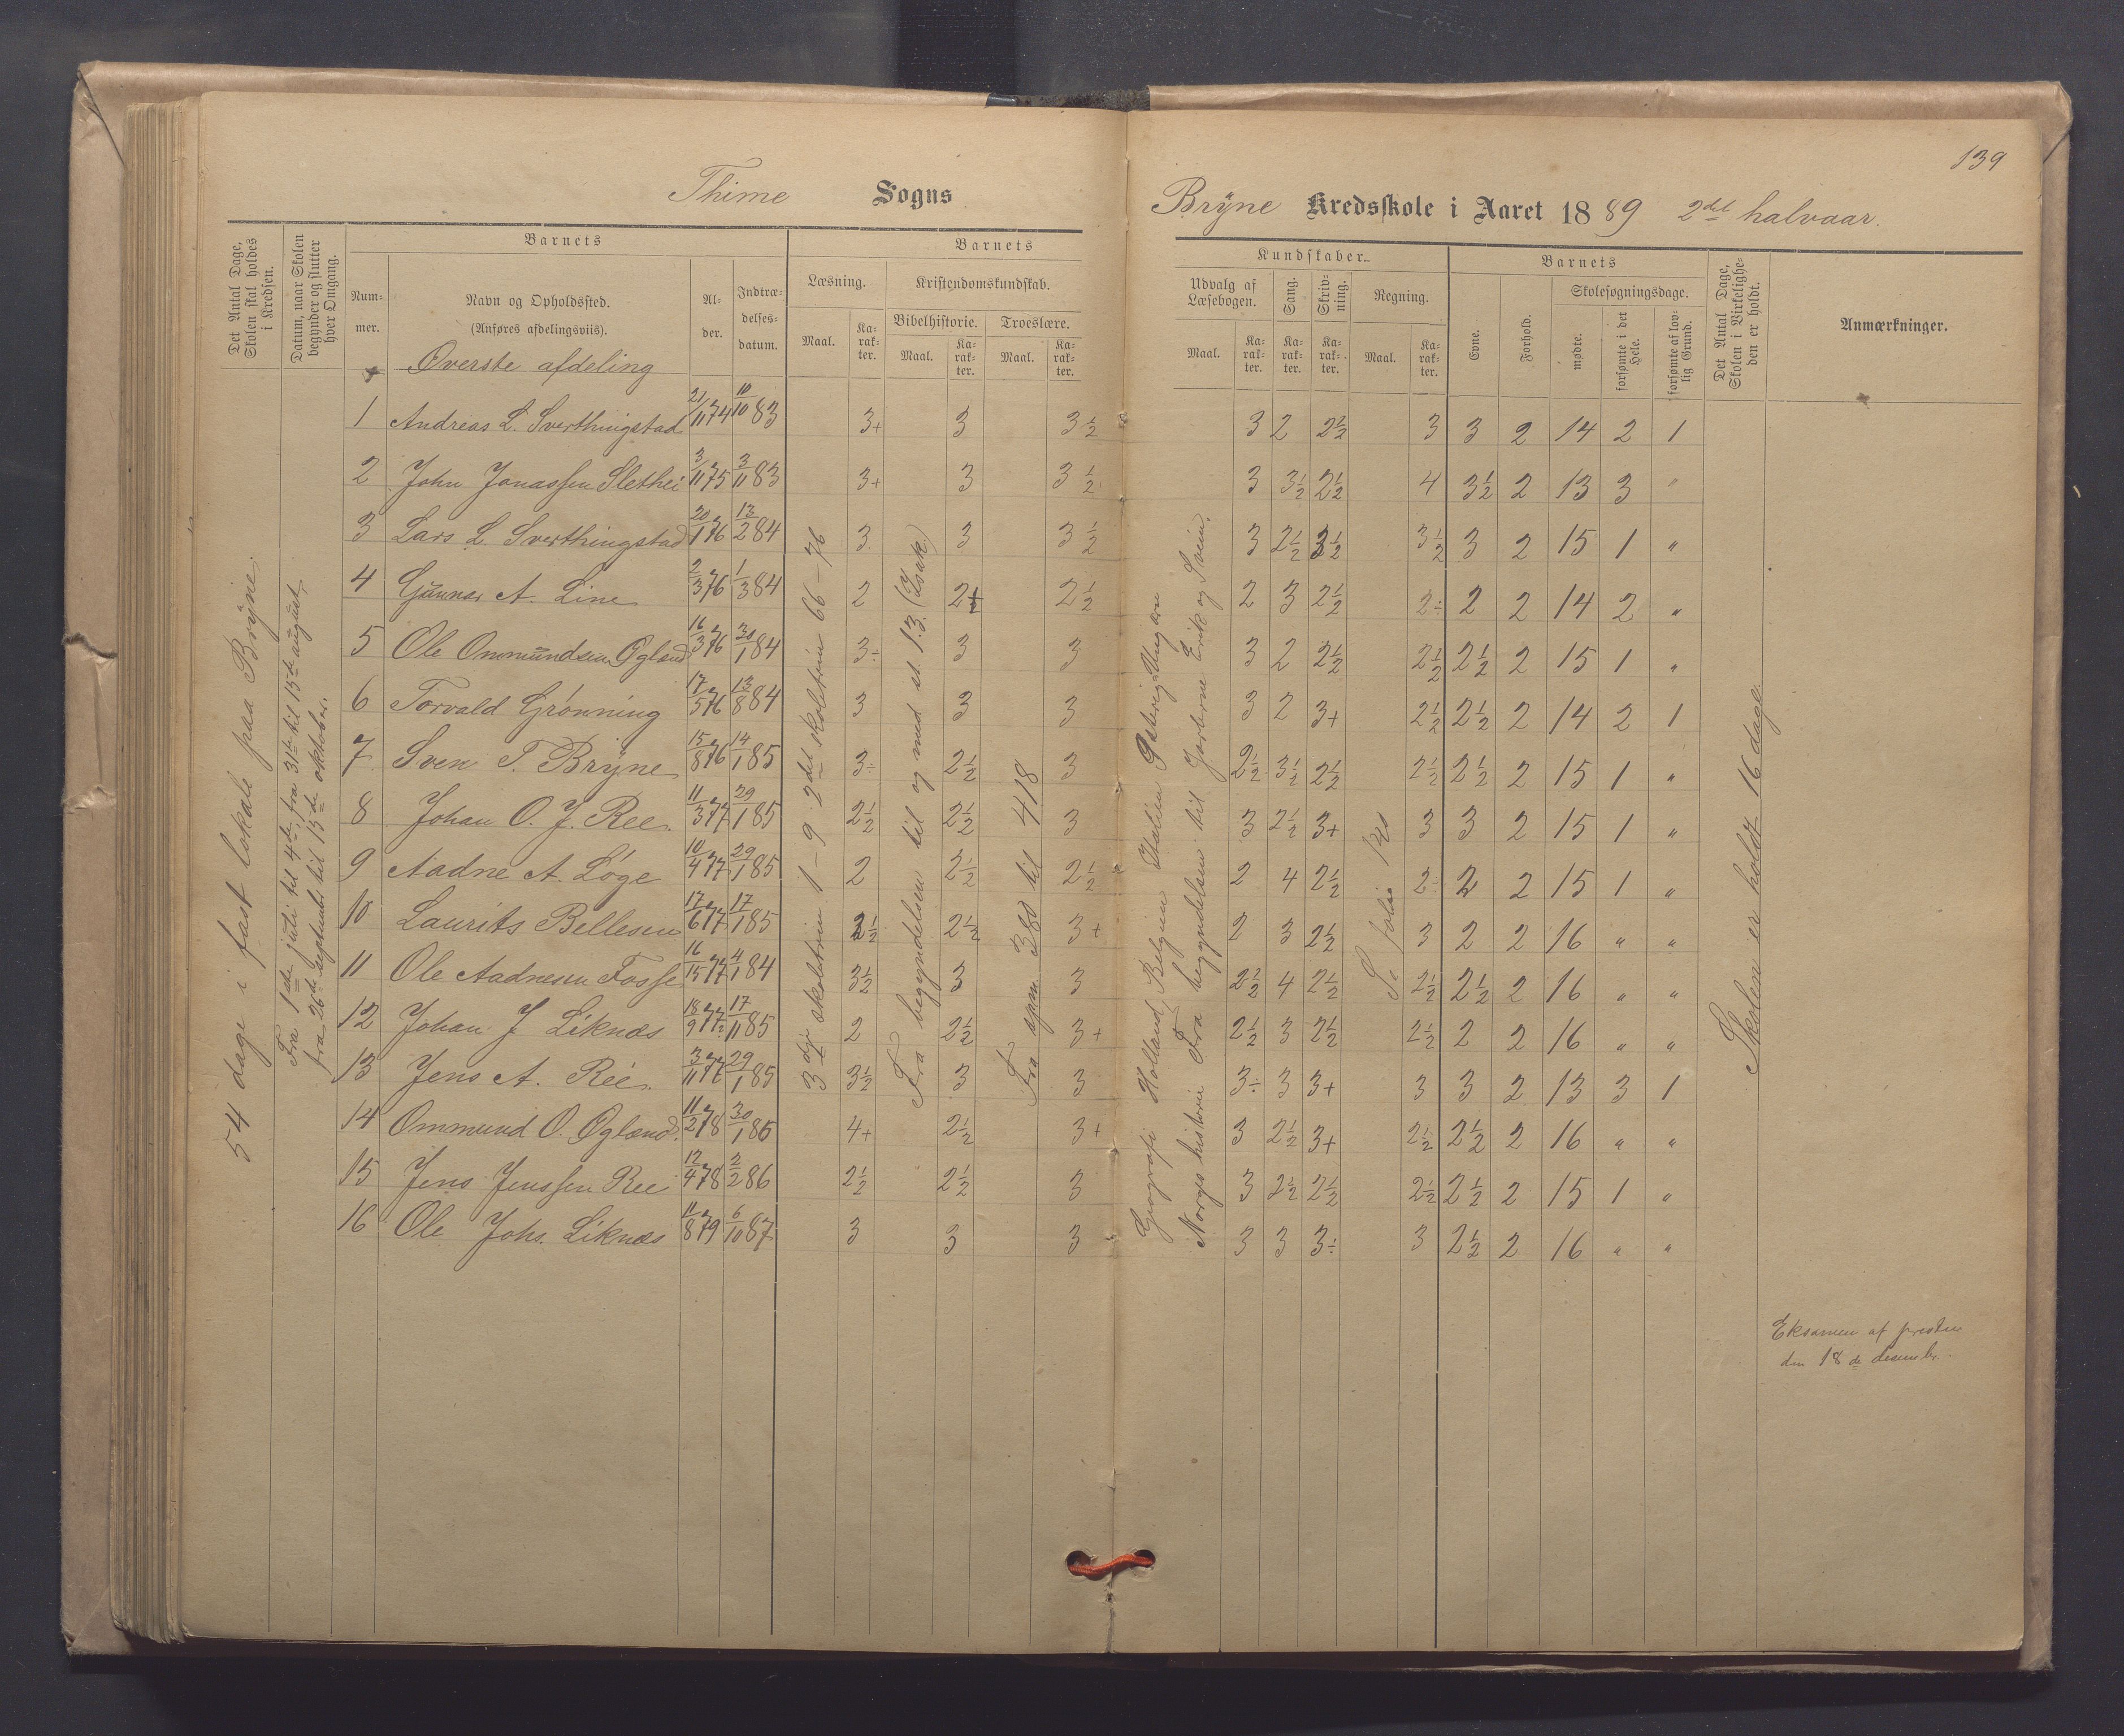 139
Thime Sogns
Brÿne Kredsskole i Aaret 1889 2det halvaar.
Det Antal Dage, Skolen skal holdes i Kredsen.
Datum, naar Skolen begynder og slutter hver Omgang.
Barnets
Nummer.
Navn og Opholdssted.
(Anføres afdelingsviis).
Alder.
Indtrædelsesdatum.
Barnets
Læsning.
Maal.
Karakter.
Kristendomskundskab.
Bibelhistorie.
Maal.
Karakter.
Troeslære.
Maal.
Karakter.
Kundskaber.
Udvalg af Læsebogen.
Maal.
Karakter.
Sang.
Karakter.
Skrivning.
Karakter.
Regning.
Maal.
Karakter.
Barnets
Evne.
Forhold.
Skolesøgningsdage.
mødte.
forsømte i det Hele.
forsømte af lovlig Grund.
Det Antal Dage, Skolen i Virkeligheden er holdt.
Anmærkninger.
Øverste afdeling
1 Andreas L. Sverthingstad 21/11 74 11/10 83 3+ 3 3½ 3 2 2½ 3 3 2 14 2 1
2 John Jonassen Slethei 3/11 75 3/11 83 3+ 3 3½ 3 3½ 2½ 4 3½ 2 13 3 "
3 Lars L. Sverthingstad 20/1 76 13/2 84 3 3 3½ 3 2½ 3½ 3½ 3 2 15 1 "
4 Gŭnnar A. Line 2/3 76 1/3 84 2 2+ 2½ 2 3 2½ 2÷ 2 2 14 2 "
5 Ole Ommŭndsen Øgland 16/3 76 30/1 84 3÷ 3 3 3 2 2½ 2½ 2½ 2 15 1 "
6 Torvald Grønning 17/5 76 13/8 84 3 3 3 3 2 3+ 2½ 2½ 2 14 2 1
7 Sven T. Brÿne 15/8 76 14/1 85 3÷ 2½ 3 2½ 3½ 2½ 2½ 2½ 2 15 1 "
8 Johan O. J. Ree. 11/3 77 29/1 85 2½ 2½ 3 3 2½ 3+ 3 3 2 15 1 "
9 Aadne A. Løge 10/4 77 29/1 85 2 2½ 2½ 2 4 2½ 2÷ 2 2 15 1 "
10 Laurits Bellesen 17/6 77 17/1 85 2½ 2½ 3+ 2 3 2½ 3 2 2 16 " "
11 Ole Aadnesen Fosse 16/15 77 4/1 84 3½ 3 3 2½ 4 2½ 2½ 2½ 2 16 " "
12 Johan J Liknæs 18/9 77 17/11 85 2 2½ 3+ 2½ 3 2½ 2½ 2 2 16 " "
13 Jens A. Ree. 3/11 77 29/1 85 3½ 3 3 3÷ 3 3+ 3 3 2 13 3 1
14 Ommund O. Øgland. 11/2 78 30/1 86 4+ 2½ 3+ 3 2½ 3+ 2½ 2½ 2 16 " "
15 Jens Jenssen Ree 12/4 78 2/2 86 2½ 2½ 3 3 2½ 2½ 2½ 2½ 2 15 1 "
16 Ole Johs. Liknæs 11/8 79 6/10 87 3 3 3 3 3 3÷ 3 2½ 2 16 " "
54 dage i fast lokale paa Brÿne.
Fra 1ste juli til 4de, fra 31te til 15de august,
fra 26de septembr til 15de oktober.
3dje skoletrin 1-9 2det skoletrin 66-76
Fra begyndelsen til og med st. 13. (Isak)
Fra spm. 380 til 418
Geografi Holland, Belgien Italien Østerig Ungarn
Norges historie Fra begyndelsen til Jarlerne Erik og Svein.
Se folio 120
Skolen er holdt 16 dage.
Eksamen af presten
den 18de desembr.